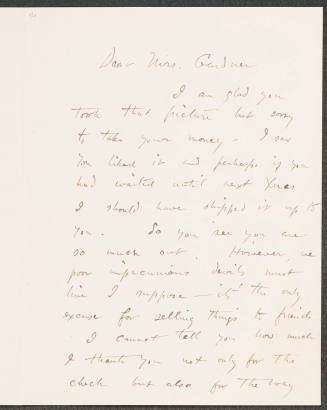 Dear Mrs. Gardner
I am glad you
took that picture but sorry
to take your money - I saw
you liked it and perhaps if you
had waited until next Xmas
I should have shipped it up to
you. So you see you are
so much out. However, we
poor impecunious devils must
live I suppose - it's the only
excuse for selling things to friends
I cannot tell you how much
I thank you not only for the
check but also for the way